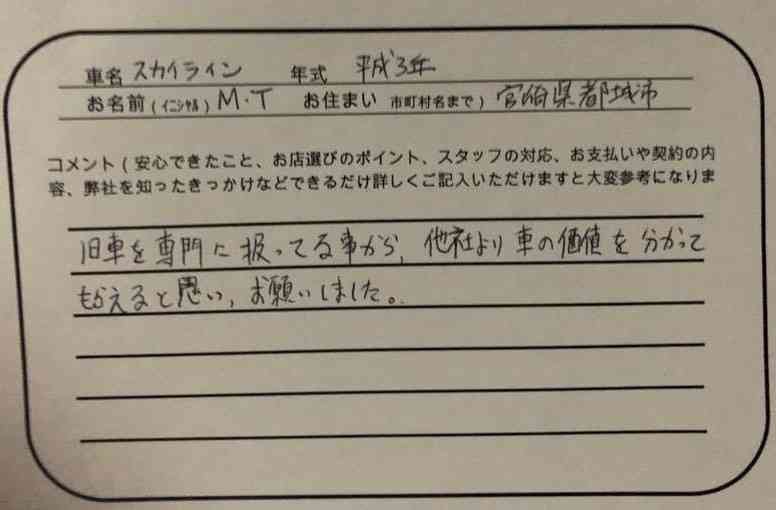 車名 スカイライン 年式 平成3年
お名前(イニシャル) M・T お住まい 市町村名まで) 宮崎県都城市
コメント(安心できたこと、お店選びのポイント、スタッフの対応、お支払いや契約の内
容、弊社を知ったきっかけなどできるだけ詳しくご記入いただけますと大変参考になりま
旧車を専門に扱ってる事から、他社より車の価値を分かって
もらえると思い、お願いしました。